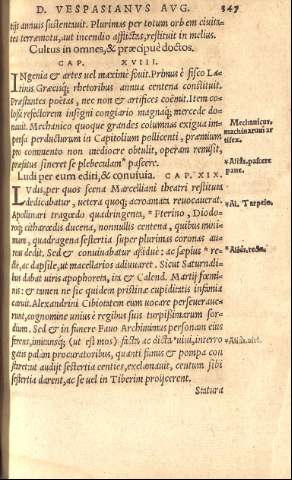 D. VESPASIANUS AVG. 347
tijs annuis sustentauit. Plurimas per totum orbem ciuita
tes terræmotu, aut incendio afflictas, restituit in melius.
Cultus in omnes, & præcipuè doctos.
CAP. XVIII.
INgenia & artes uel maximè fouit. Primus è fisco La=
tinis Græcisq; rhetoribus annua centena constituit.
Præstantes poëtas, nec non & artifices coëmit. Item co=
lossi refectorem insigni congiario magnaq; mercede do=
nauit. Mechanico quoque grandes columnas exigua im=
pensa perducturum in Capitolium pollicenti, præmium
pro commento non mediocre obtulit, operam remisit,
præfatus sineret se plebeculam* pascere.
Mechanicus,
machinarum ar
tifex.
*Aliàs, pascere
pane.
Ludi per eum editi, & conuiuia. CAP. XIX.
LVdis, per quos scena Marcelliani theatri restituta
dedicabatur, uetera quoq; acroamata reuocauerat.
Apollinari tragœdo quadringenta, * Pterino, Diodo=
roq; citharœdis ducena, nonnullis centena, quibus mini=
mum, quadragena sestertia super plurimas coronas au=
reas dedit. Sed & conuiuabatur assiduè: ac sæpius * re=
ctè, ac dapsilè, ut macellarios adiuuaret. Sicut Saturnali=
bus dabat uiris apophoreta, ita & Calend. Martij fœmi=
nis: & tamen ne sic quidem pristinæ cupiditatis infamia
caruit. Alexandrini Cibiosactem eum uocare perseueraue=
runt, cognomine unius è regibus suis turpissimarum sor=
dium. Sed & in funere Fauo Archimimus personam eius
ferens, imitansq; (ut est mos) facta ac dicta *uiui, interro
gatis palam procuratoribus, quanti funus & pompa con
staret: ut audijt sestertia centies, exclamauit, centum sibi
sestertia darent, ac se uel in Tiberim proijcerent.
*Al. Terpno.
*Aliàs, recta.
*Aliàs, uiui.
Statura